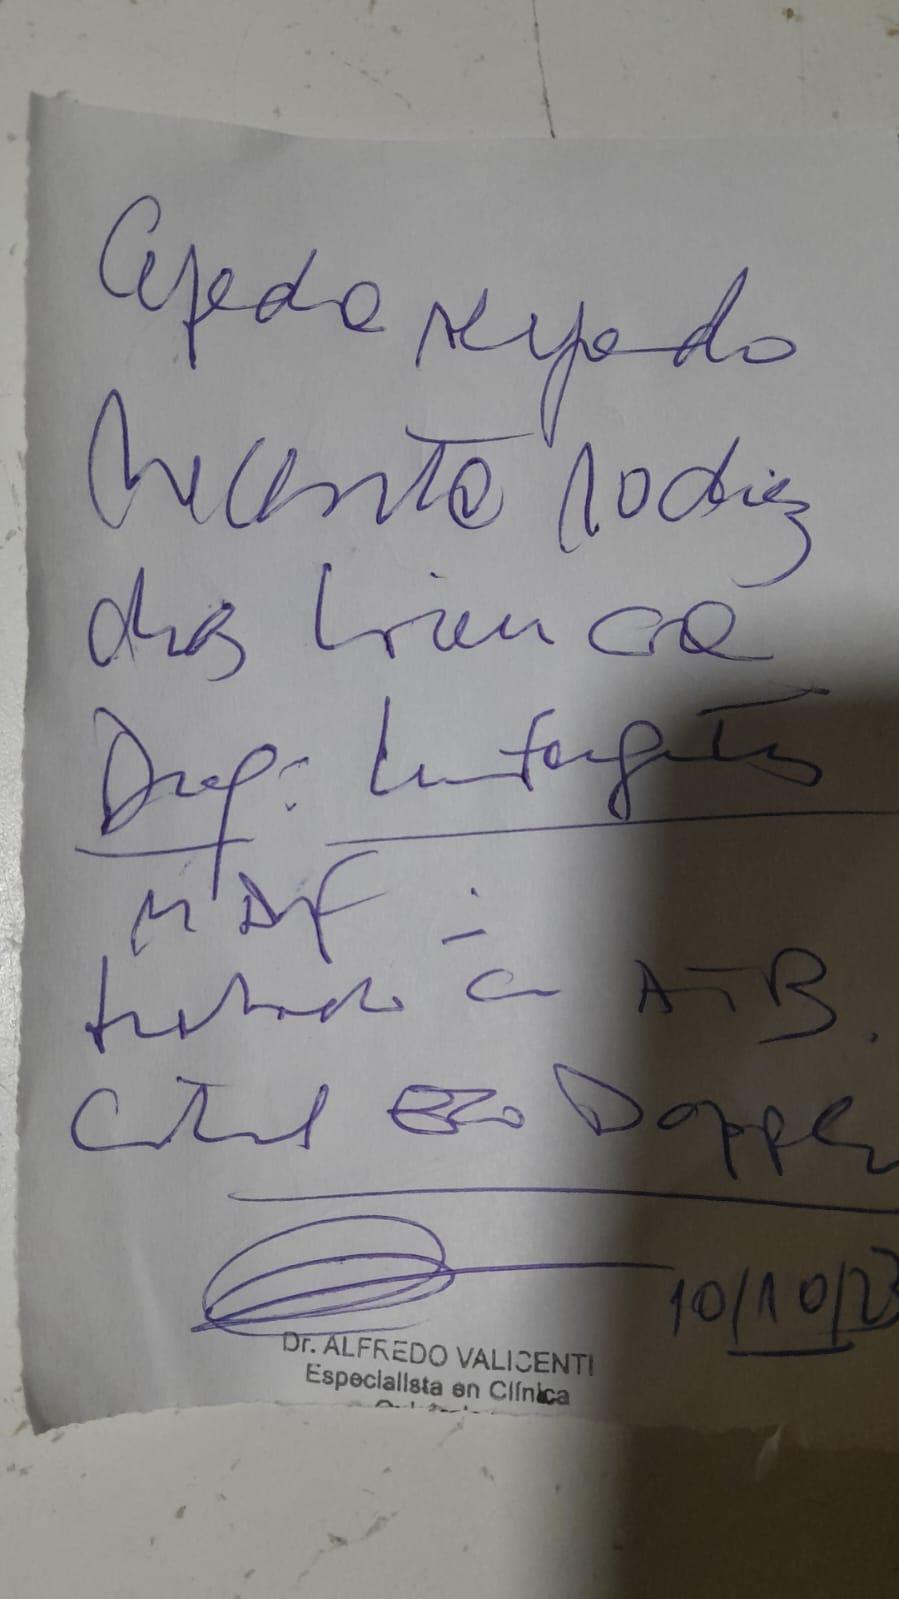 Cepeda Alejandro
Necesita 10 diez
días licencia
Diag: Linfangitis
M Der
tratado c ATB.
Control Eco Doppler
10/10/23
Dr. ALFREDO VALICENTI
Especialista en Clínica